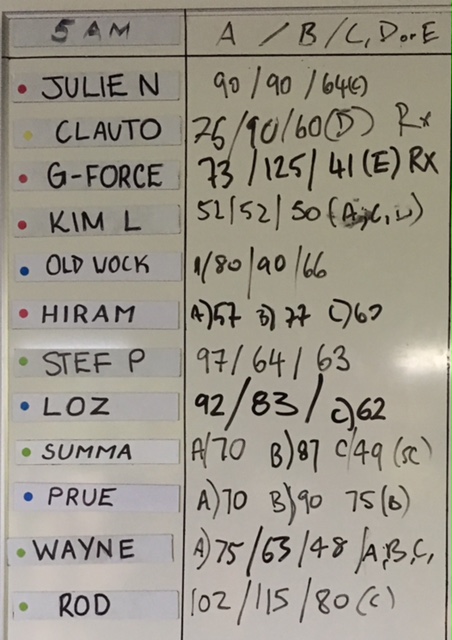 5 AM A / B / C, D or E
JULIE N 90 / 90 / 64(c)
CLAUTO 75/90/60(D) Rx
G-FORCE 73 / 125 / 41 (E) RX
KIM L 52/52/50 (A,C,
OLD VOCK 1/80/90/66
HIRAM A)57 B) 77 C)60
STEF P 97/64/63
LOZ 92/83/ C)62
SUMMA A/70 B)87 C/49 (SC)
PRUE A)70 B)90 75(B)
WAYNE A)75/63/48 /A,B,C,
ROD 102/115/80 (C)